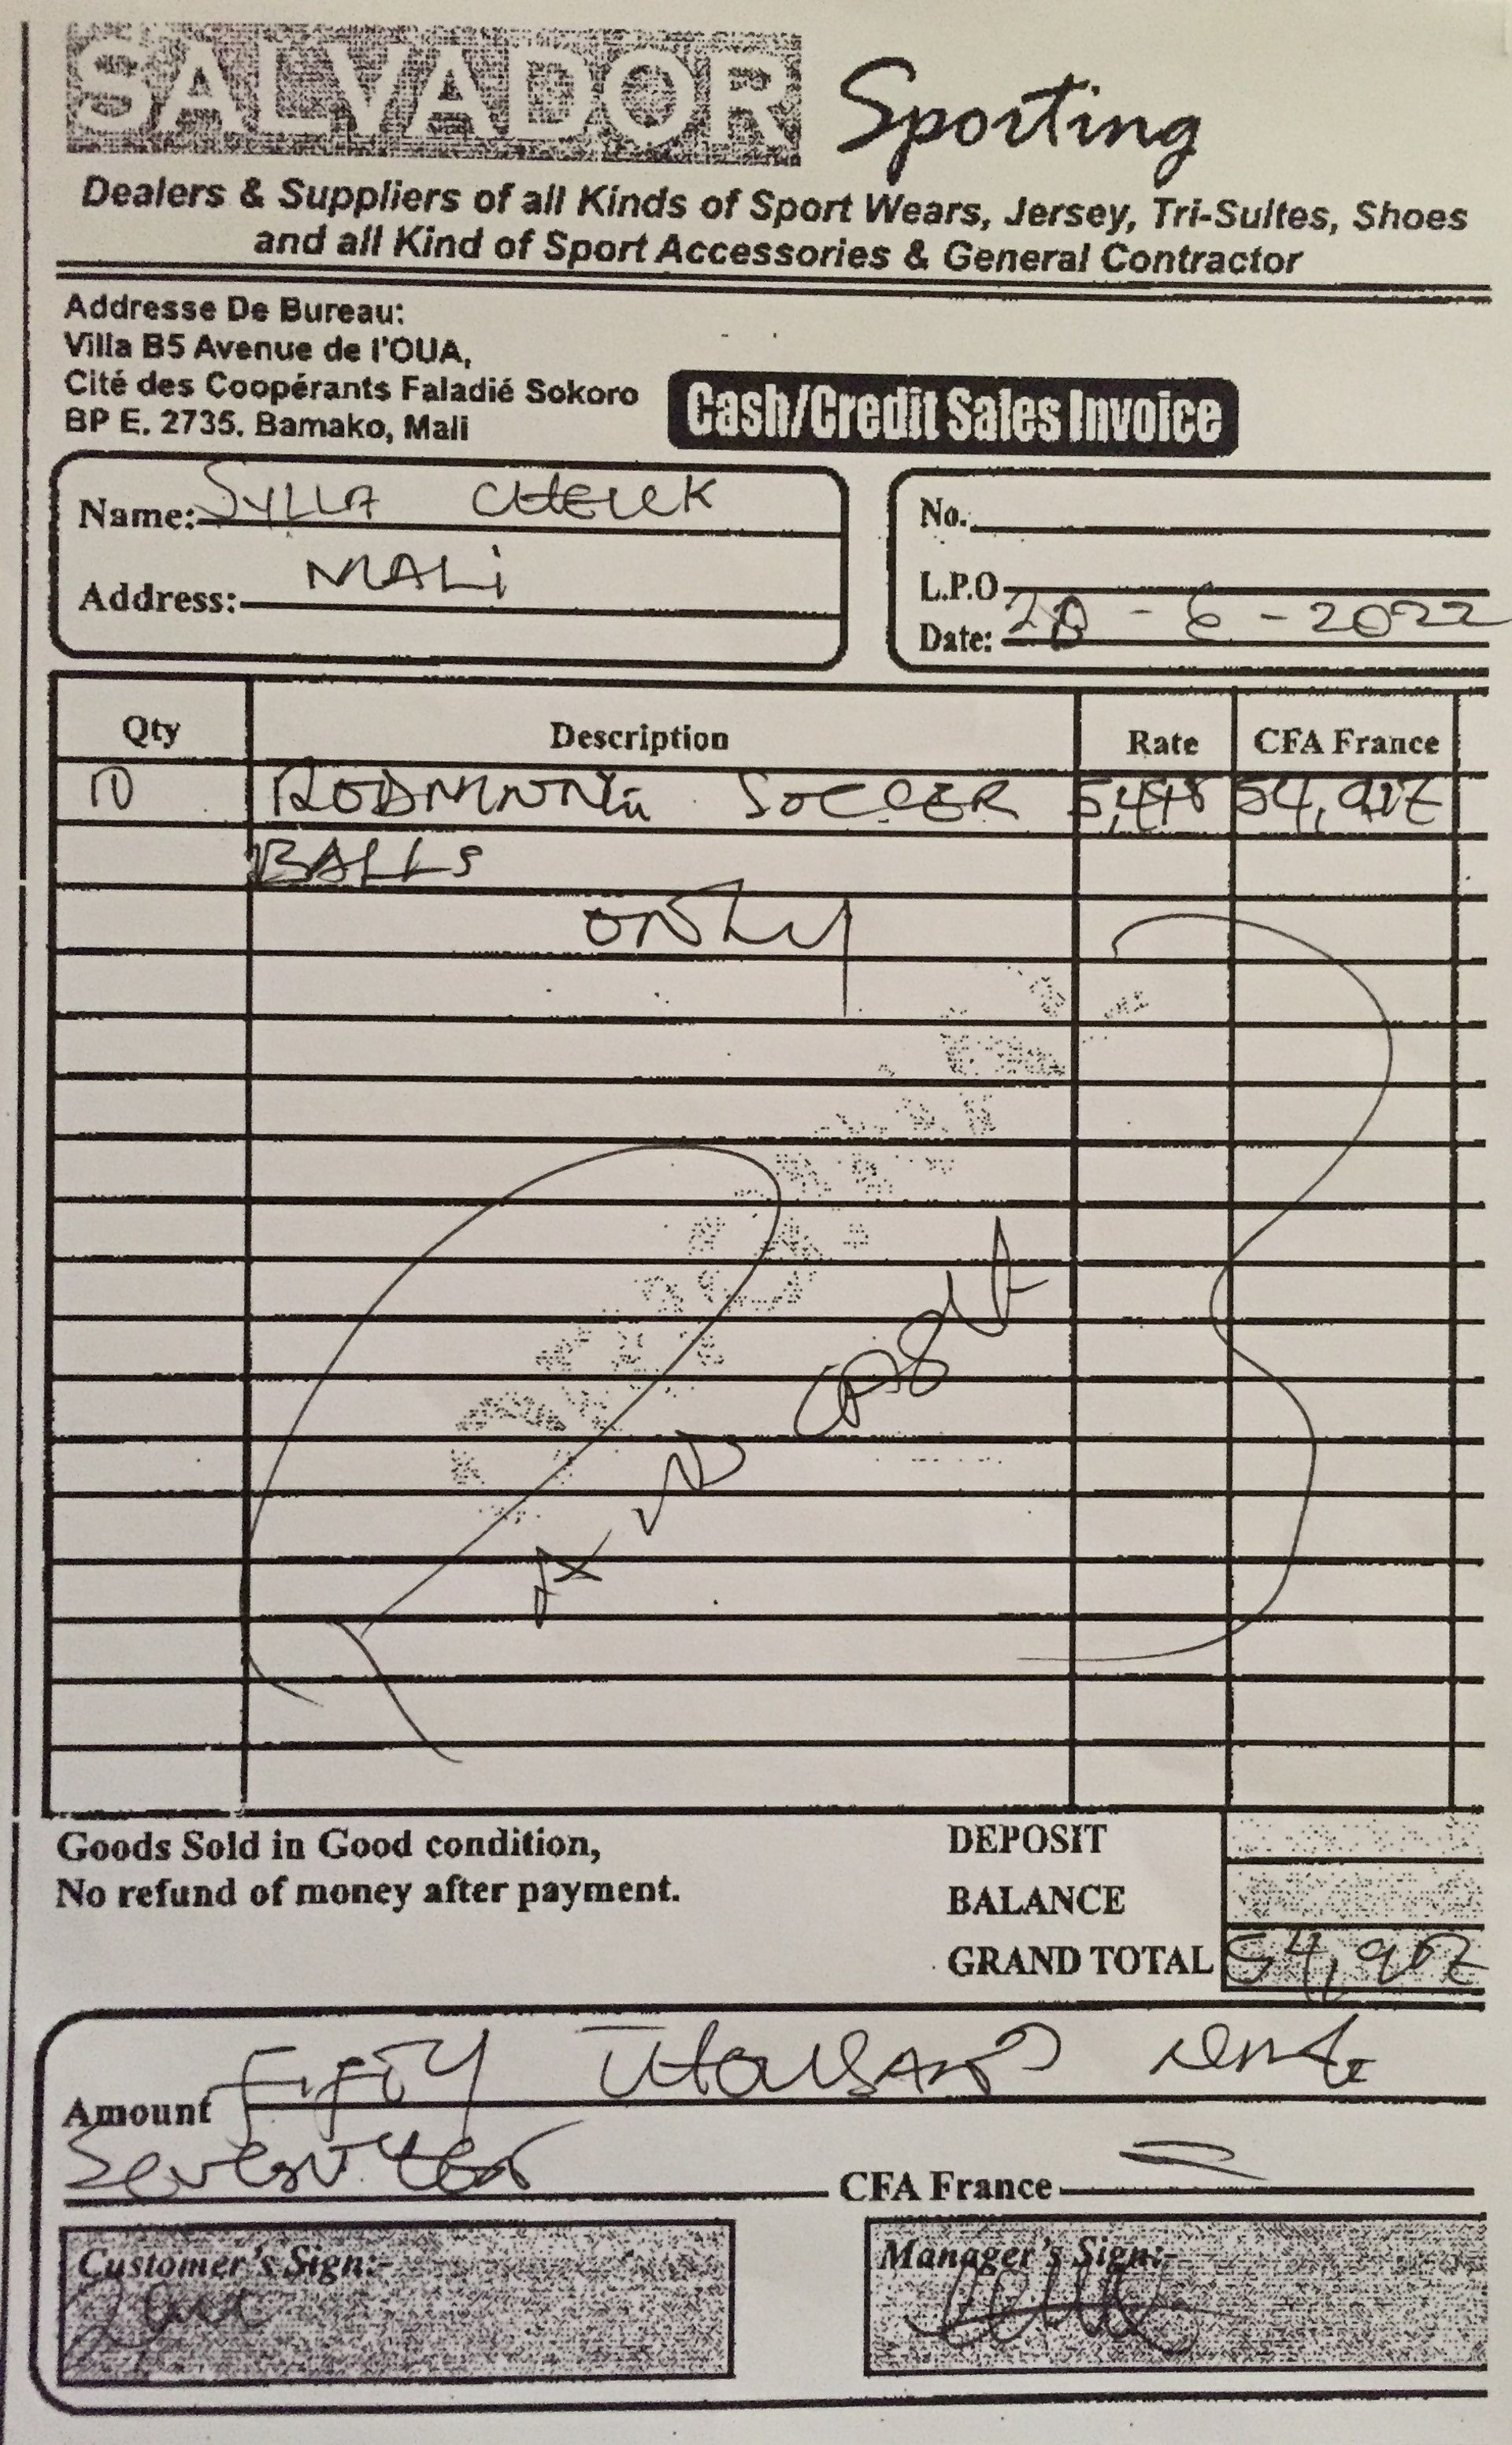 SALVADOR Sporting
Dealers & Suppliers of all Kinds of Sport Wears, Jersey, Tri-Suites, Shoes
and all Kind of Sport Accessories & General Contractor
Addresse De Bureau:
Villa B5 Avenue de l'OUA,
Cité des Coopérants Faladié Sokoro
BP E. 2735. Bamako, Mali
Cash/Credit Sales Invoice
Name: SYLLA CHEICK
Address: MALi
No.
L.P.O
Date: 20 - 6 - 2022
Qty Description Rate CFA France
10 SOCCER
BALLS
ONLY
Goods Sold in Good condition,
No refund of money after payment.
DEPOSIT
BALANCE
GRAND TOTAL 54,907
Amount FiFTY THOUSAND
CFA France
Customer's Sign:-
Manager's Sign:-